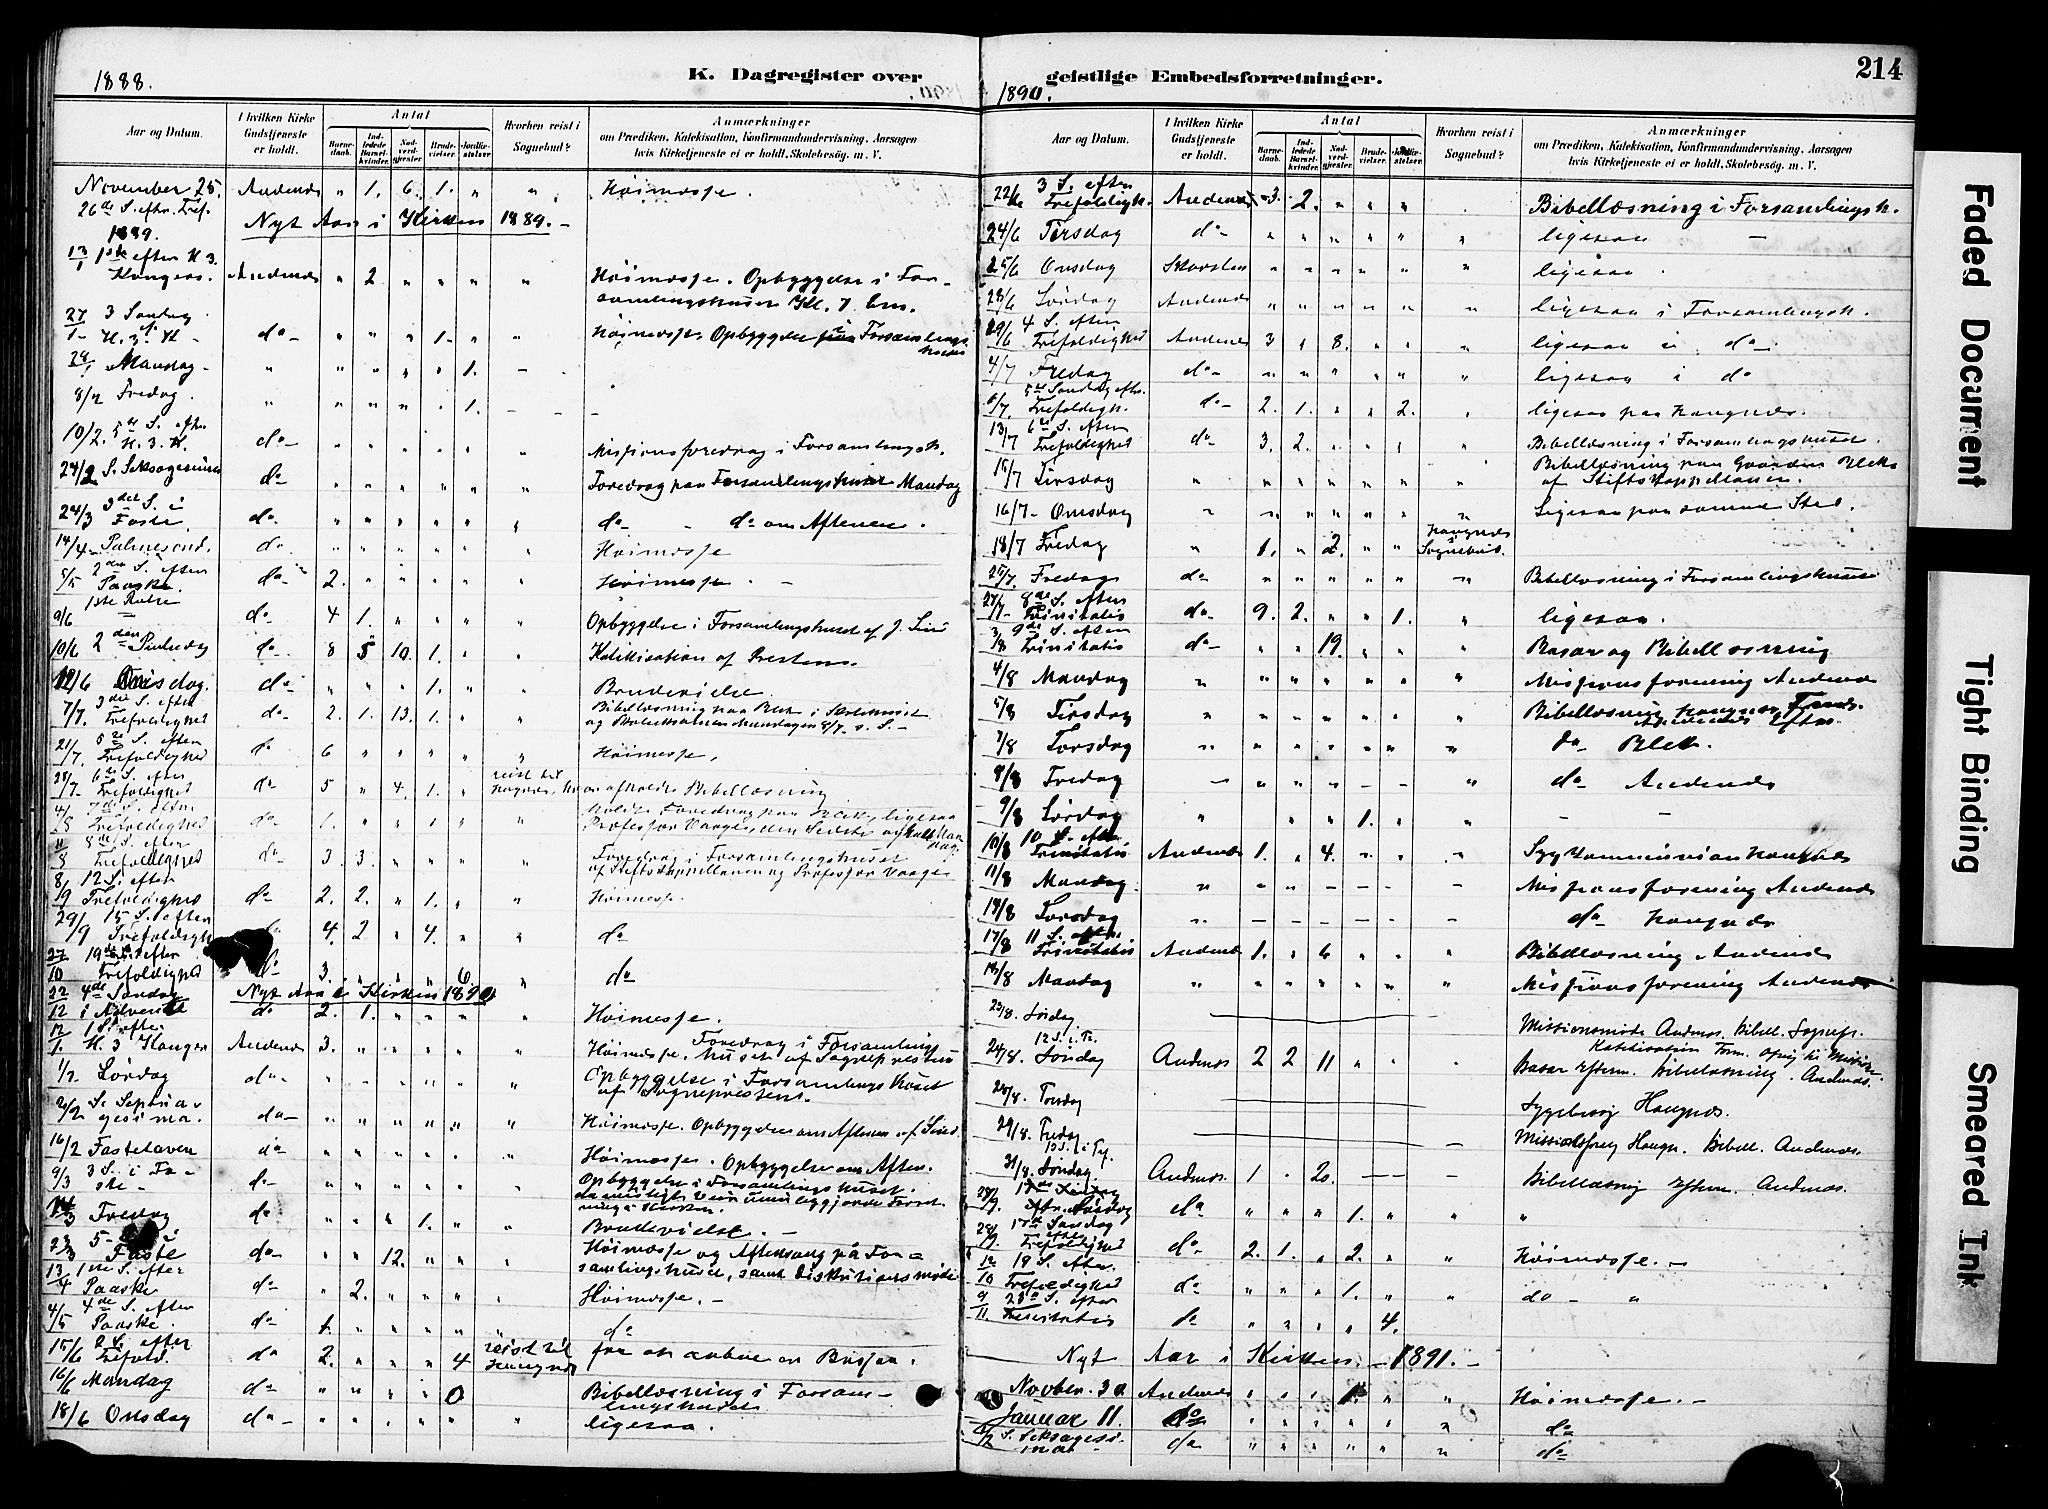 1888.
K. Dagregister over
Aar og Datum.
I hvilken Kirke Gudstjeneste er holdt.
Antal
Barnedaab.
Indledede Barselkvinder.
Nadverdgjester.
Brudevielser.
Jordfæstelser.
Hvorhen reist i Sognebud?
Anmærkninger
om Prædiken, Katekisation, Konfirmandundervisning, Aarsagen
hvis Kirketjeneste ei er holdt, Skolebesøg, m. V.
November 25. Andenæs " 1. 6. 1. " " Høimesse.
26de S. eftr. Tref.
Nyt Aar i Kirken 1889. -
1889.
13/1 1ste efter H. 3.
Konger. Andenæs " 2 " " " " Høimesse. Opbyggelse i For-
samlingshuset Kl. 7 Em.
27/1 3 Søndag
H. 3. K - do - " " " 1. " " Høimesse. Opbyggelse Forsamlings
huset
28/1 Mandag - " " " " " 1. -
8/2 Fredag. " " " " " 1. - - -
10/2. 5te S. eftr.
H. 3. K. do - " " " " " " Missionsforedrag i Forsamlingsh.
24/2 S. Seksagesima do " " " " " " Foredrag paa Forsamlingshuset Mandag
24/3 3die S. i
Faste. do. " " " " " " do - " do om Aftenen.
14/4 - Palmesønd. do. " " " " " " Høimesse
5/5 2den S. efter
Paaske. do - 2. " " " " " Høimesse. -
9/6 1ste Pintse
do. 4 1. " " " " Opbyggelse i Forsamlingshuset af J. Lind
10/6 2den Pintsedag do. 8 5 10. 1. " " Katekisation af Presten.
12/6 Onsdag. do " " " 1. " " Brudevielse.
7/7. 3die S. efter
Trefoldighed do - 2. 1. 13. 1. " " Bibellæsning paa Blek i Skolehuset
21/7 5te S. efter
Trefoldighed do 6 " " " " " Høimesse.
28/7. 6te S. efter
Trefoldighed do 5 " 4. 1. " reist til
afholdt Bibellæsning
4/8 7de S. efter
Trefoldighed do - 1. " " 1 " " holdt Foredrag paa Blek, ligesaa
Professor Vaage,
11/8 8de S. efter
Trefoldighed do 3. 3. " " " " Foredrag i Forsamlingshuset
af Stiftskappellanen og Professor Vaage
8/9 12 S. efter
Trefoldighed do - 2. 2. " 1. " " Høimesse.
29/9 15 S. efter
Trefoldigh do. 4. 2 " 4. " " do
27/10 19de S. efter
Trefoldighed do 3. " " " 6 " do
Nyt Aar i Kirken 1890
22/12 4de Søndag
i Advent do. 2. 1. " " " " Høimesse.
12/1. 1 S. efter
H. 3 Konger Andenæs 3. " " " " " Høimesse. Foredrag i Forsamlings
huset af Sognepresten
1/2. Lørdag do - " " " " " " Opbyggelse i Forsamlingshuset
af Sognepresten.
2/2 S. Septua-
gesima. do - " " " " " " Høimesse. Opbyggelse om Aftenen af Lind
16/2 Fastelaven do - " " " " " " Høimesse. Opbyggelse om Aften.
9/3 3 S. i Fa-
ste - do - " " " " " " Opbyggelse i Forsamlingshuset.
14/3 Fredag do " " " 1. " " Brudevielse. -
23/3 5-
Faste do - " " 12. " " " Høimesse og Aftensang på For-
samlingshuset, samt Diskutionsmøte
13/4 1ste S. efter
Paaske do - " 2. " " " " Høimesse. -
4/5 4de S. efter
Paaske. do - 1. " " " " " do
15/6 2 S. efter
Trefold. do 2. " " " 4 reist til
Haugnæs for at
16/6 Mandag do - " " " " 0 Bibellæsning i Forsam-
lingshuset
18/6 Onsdag do - " " " " " " ligesaa.
214
1890.
geistlige Embedsforretninger.
Aar og Datum.
I hvilken Kirke Gudstjeneste er holdt.
Antal
Barnedaab.
Indledede Barselkvinder.
Nadverdgjester.
Brudevielser.
Jordfæstelser.
Hvorhen reist i Sognebud?
Anmærkninger
om Prædiken, Katekisation, Konfirmandundervisning, Aarsagen
hvis Kirketjeneste ei er holdt, Skolebesøg, m. V.
22/6 3 S. efter
Trefoldigh. Andenæs 3. 2. " " " Bibellæsning i Forsamlingsh.
24/6 Tirsdag do - " " " " " " ligesaa -
25/6 Onsdag Skarsten " " " " " " ligesaa.
28/6 Lørdag Andenæs " " " " " " ligesaa i Forsamlingsh.
29/6 4 S. efter
Trefoldighed Andenæs 3 " 8. " " " ligesaa i do -
4/7 Fredag do - " " " " " " ligesaa i do
6/7. 5te Søndag eftr.
Trefoldigh. do - 2. 1. " " 2. " ligesaa paa Haugnæs.
13/7 6te S. efter
Trefoldighed do 3. 2. " " " " Bibellæsning i Forsamlingshuset.
15/7 Tirsdag " " " " " " " Bibellæsning paa Gaarden Blek
af Stiftskappellanen.
16/7 - Onsdag " " " " " " " Ligesaa paa samme Sted.
18/7 Fredag " 1. " 2. " " Haugnæs
Sognebud.
25/7. Fredag do " " " " " " Bibellæsning i Forsamlingshuset
27/7 - 8de S. efter
Trinitatis do 9. 2. " " 1. " ligesaa.
3/8 9de S. efter
Trinitatis do - " " 19. " " " Basar og Bibellæsning
4/8 Mandag " " " " " " " Missionsforening Andenæs
5/8 Tirsdag " " " " " " " Bibellæsning Haugnæs
7/8 Torsdag " " " " " " " do Blek.
8/8 Fredag - " " " - - " do Andenæs
9/8 Lørdag " " " 1. " " - -
10/8 10 S. efter
Trinitatis Andenæs 1. " 4. " " "
11/8 Mandag. " " " - - - - Missionsforening Andenæs
14/8 Torsdag " - - - - - - do Haugnæs
17/8 11 S. efter
Trinitatis Andenæs 1. " 6 " " " Bibellæsning Andenæs
18/8 Mandag " " " " " " " Missionsforening Andenæs
23/8. Lørdag Missionsmøde Andenæs. Bibell. Sognepr.
24/8. 12 S. e. Tr.
Søndag Andenæs 2 2 11 " " " Katekisation
Basar Efterm. Bibellæsning. Andenæs.
28/8. Torsdag Sygebesøg Haugnæs.
29/8. Fredag Missionsforeg Haugn. Bibell. Andenæs.
31/8. 13 S. i Tr.
Søndag Andenæs. 1 " 20. - - - Bibellæsnig Efterm. Andenæs.
do " " " 1. " " "
28/9. 17de Søndag
efter
Trefoldighed do - 2. 1. " 2. " " Høimesse. -
12/10 19 S. efter.
Trefoldighed do " " " 1. " " do - "
9/11. 23de S. efter
Trinitatis do " " " " 4.
Nyt Aar i Kirken. - 1891. -
Novber. 30. Andenæs " " " 1. " " Høimesse. -
Januar 11. do " " " " " " do
/2 S. Seksagesi-
ma do " " " " " " do
Faded Document
Tight Binding
Smeared Ink